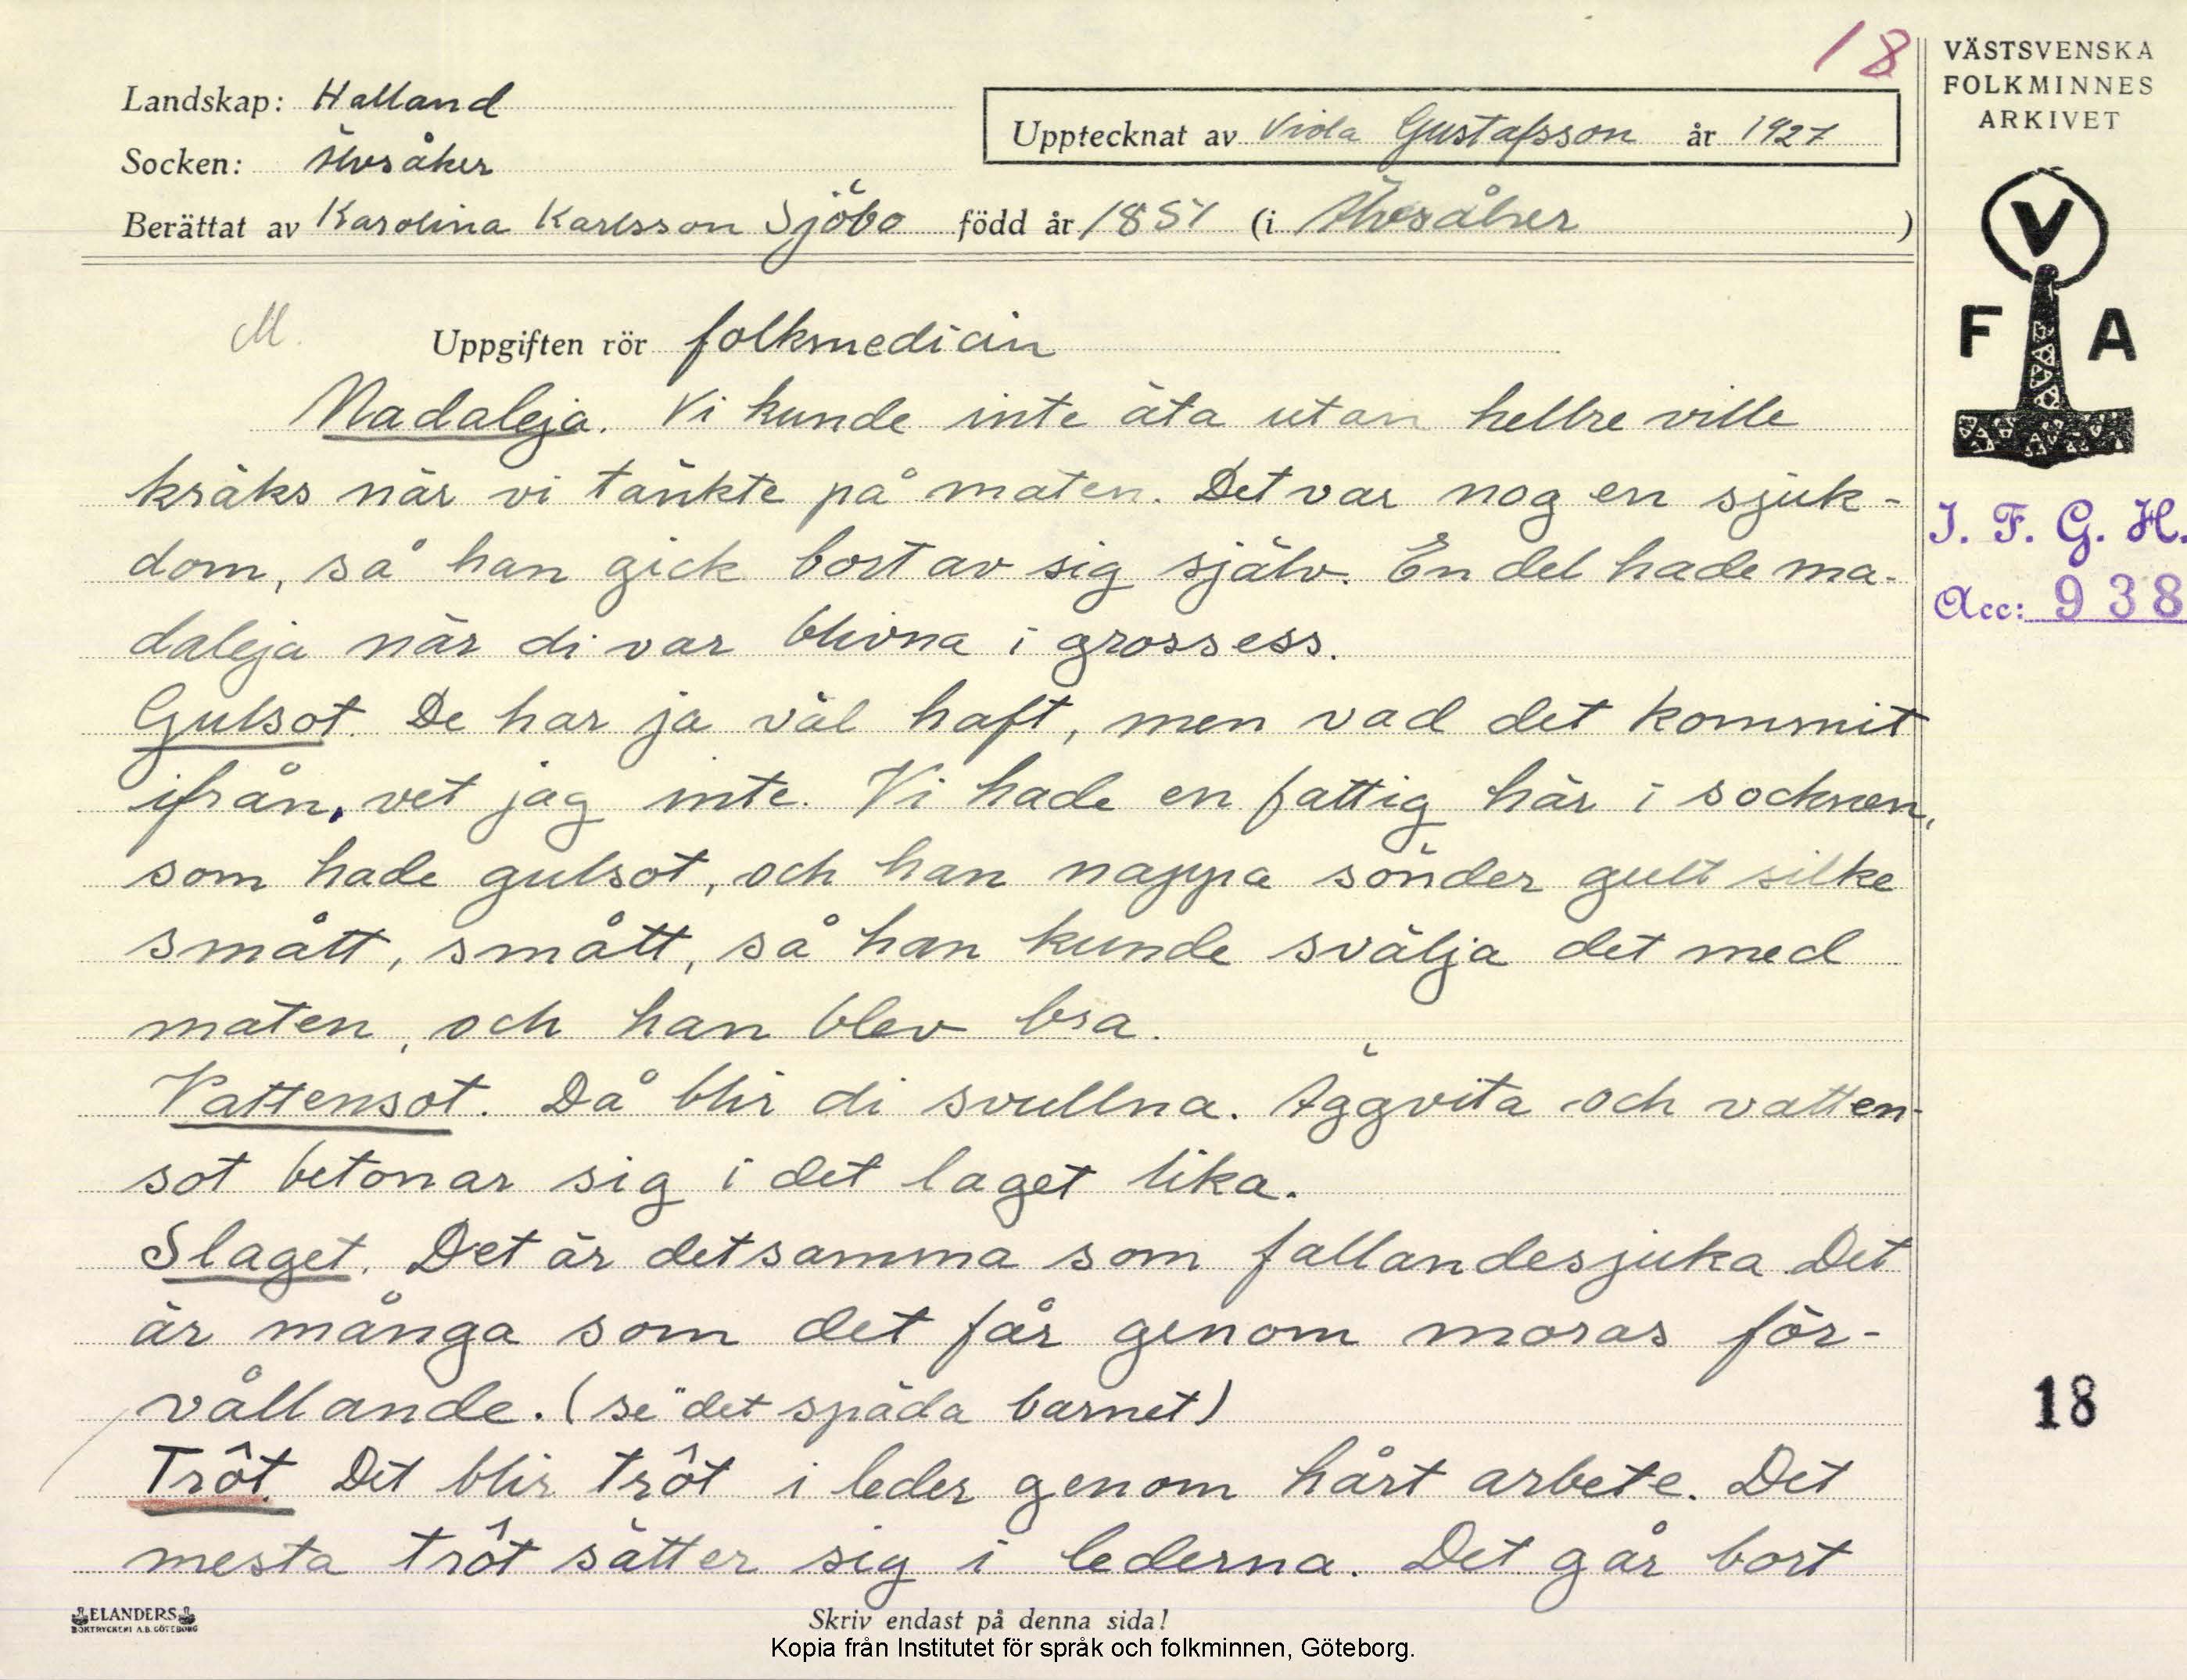 18
VÄSTSVENSKA
FOLKMINNES
ARKIVET
Landskap: Halland
Upptecknat av Viola Gustafsson år 1927
Socken: Älvsåker
Berättat av Karolina Karlsson Sjöbo född år 1851 (i Älvsåker)
V
F A
M.
Uppgiften rör folkmedicin
Madaleja. Vi kunde inte äta utan hellre ville
kräks när vi tänkte på maten. Det var nog en sjuk-
I. F. G. H.
dom, så han gick bort av sig själv. En del hade ma-
Acc: 938
daleja när di var blivna i grossess.
Gulsot. De har ja väl haft, men vad det kommit
ifrån, vet jag inte. Vi hade en fattig här i socknen,
som hade gulsot, och han nappa sönder gult silke
smått, smått, så han kunde svälja det med
maten, och han blev bra.
Vattensot. Då blir di svullna. Äggvita och vatten-
sot betonar sig i det laget lika.
Slaget. Det är detsamma som fallandesjuka Det
är många som det får genom moras för-
vållande. (se "det späda barnet)
18
Trôt. Det blir trôt i leder genom hårt arbete. Det
mesta trôt sätter sig i lederna. Det går bort
ELANDERS
BOKTRYCKERI A.B. GÖTEBORG
Skriv endast på denna sida!
Kopia från Institutet för språk och folkminnen, Göteborg.